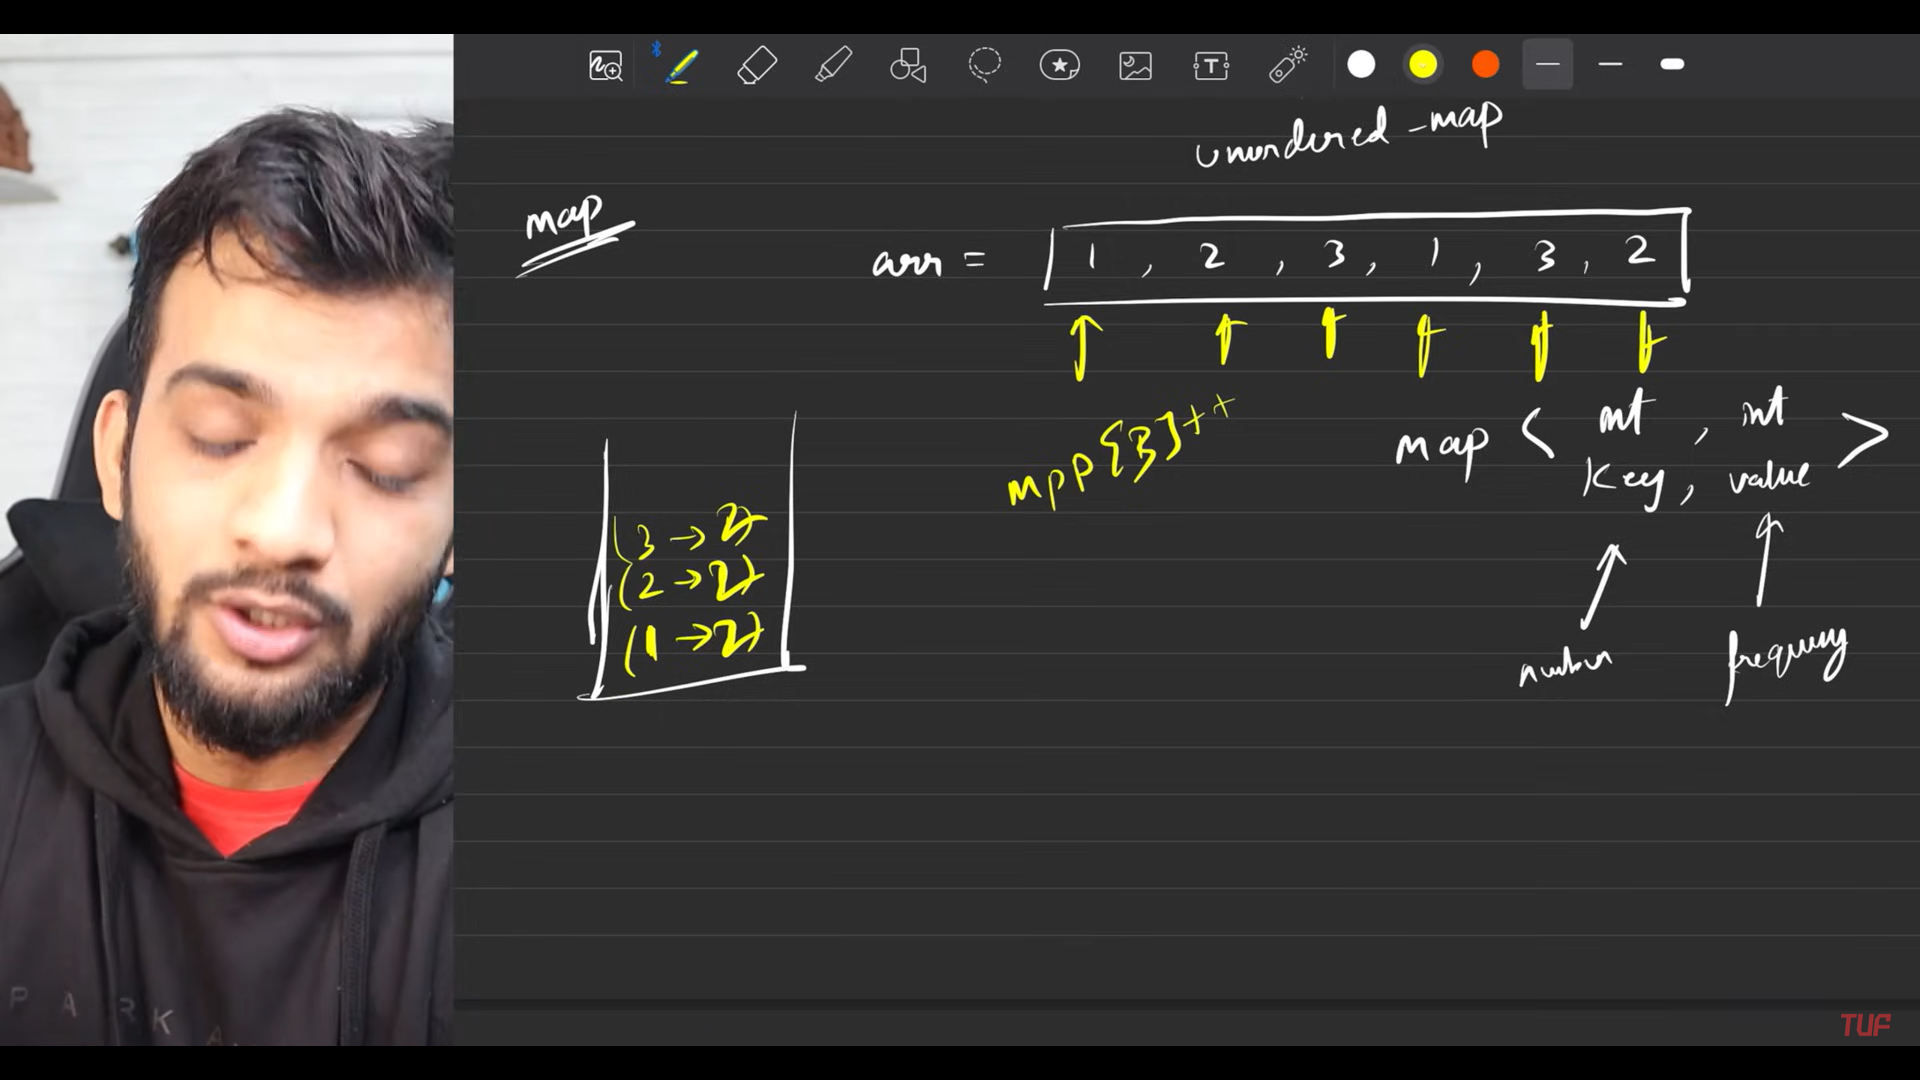 unordered_map
map
arr = 1, 2, 3, 1, 3, 2
mpp[3]++
map < int, int >
key, value
(3 → 2)
(2 → 2)
(1 → 2)
number
frequency
PARK A
TUF